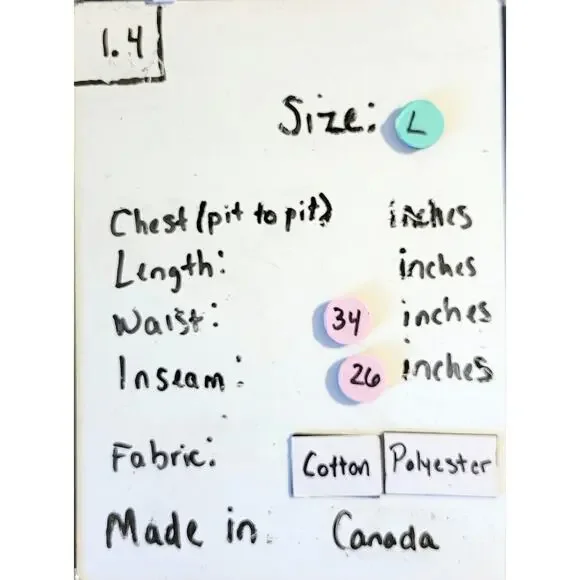 1.4
Size: L
Chest (pit to pit) inches
Length: inches
Waist: 34 inches
Inseam: 26 inches
Fabric: Cotton Polyester
Made in: Canada